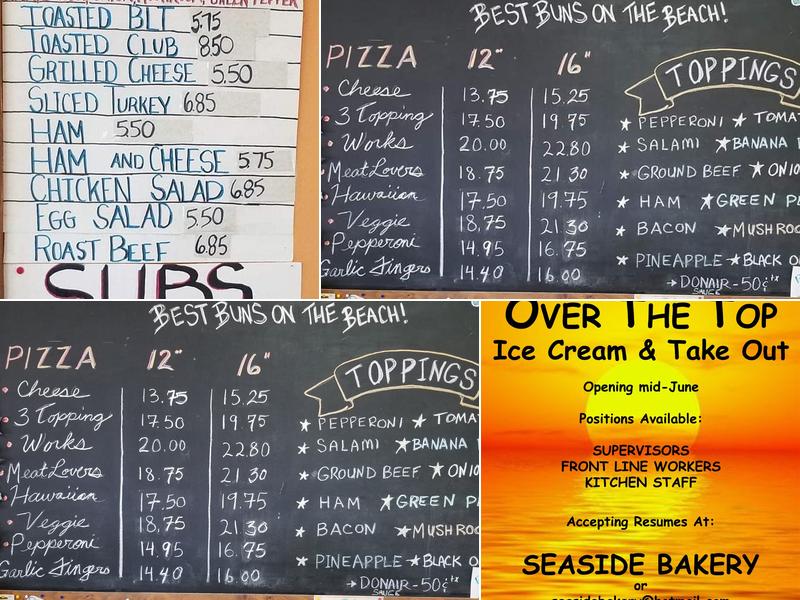 TOASTED BLT 5.75
TOASTED CLUB 8.50
GRILLED CHEESE 5.50
SLICED TURKEY 6.85
HAM 5.50
HAM AND CHEESE 5.75
CHICKEN SALAD 6.85
EGG SALAD 5.50
ROAST BEEF 6.85
SUBS
BEST BUNS ON THE BEACH!
PIZZA 12" 16"
Cheese 13.75 15.25
3 Topping 17.50 19.75
Works 20.00 22.80
Meat Lovers 18.75 21.30
Hawaiian 17.50 19.75
Veggie 18.75 21.30
Pepperoni 14.95 16.75
Garlic Fingers 14.40 16.00
TOPPINGS
★ PEPPERONI ★ TOMA
★ SALAMI ★ BANANA
★ GROUND BEEF ★ ONIO
★ HAM ★ GREEN PE
★ BACON ★ MUSHROO
★ PINEAPPLE ★ BLACK O
→ DONAIR - 50¢
SAUCE
BEST BUNS ON THE BEACH!
PIZZA 12" 16"
Cheese 13.75 15.25
3 Topping 17.50 19.75
Works 20.00 22.80
Meat Lovers 18.75 21.30
Hawaiian 17.50 19.75
Veggie 18.75 21.30
Pepperoni 14.95 16.75
Garlic Fingers 14.40 16.00
TOPPINGS
★ PEPPERONI ★ TOMA
★ SALAMI ★ BANANA
★ GROUND BEEF ★ ONIO
★ HAM ★ GREEN P
★ BACON ★ MUSHROO
★ PINEAPPLE ★ BLACK O
→ DONAIR - 50¢ tx
SAUCE
OVER THE TOP
Ice Cream & Take Out
Opening mid-June
Positions Available:
SUPERVISORS
FRONT LINE WORKERS
KITCHEN STAFF
Accepting Resumes At:
SEASIDE BAKERY
or